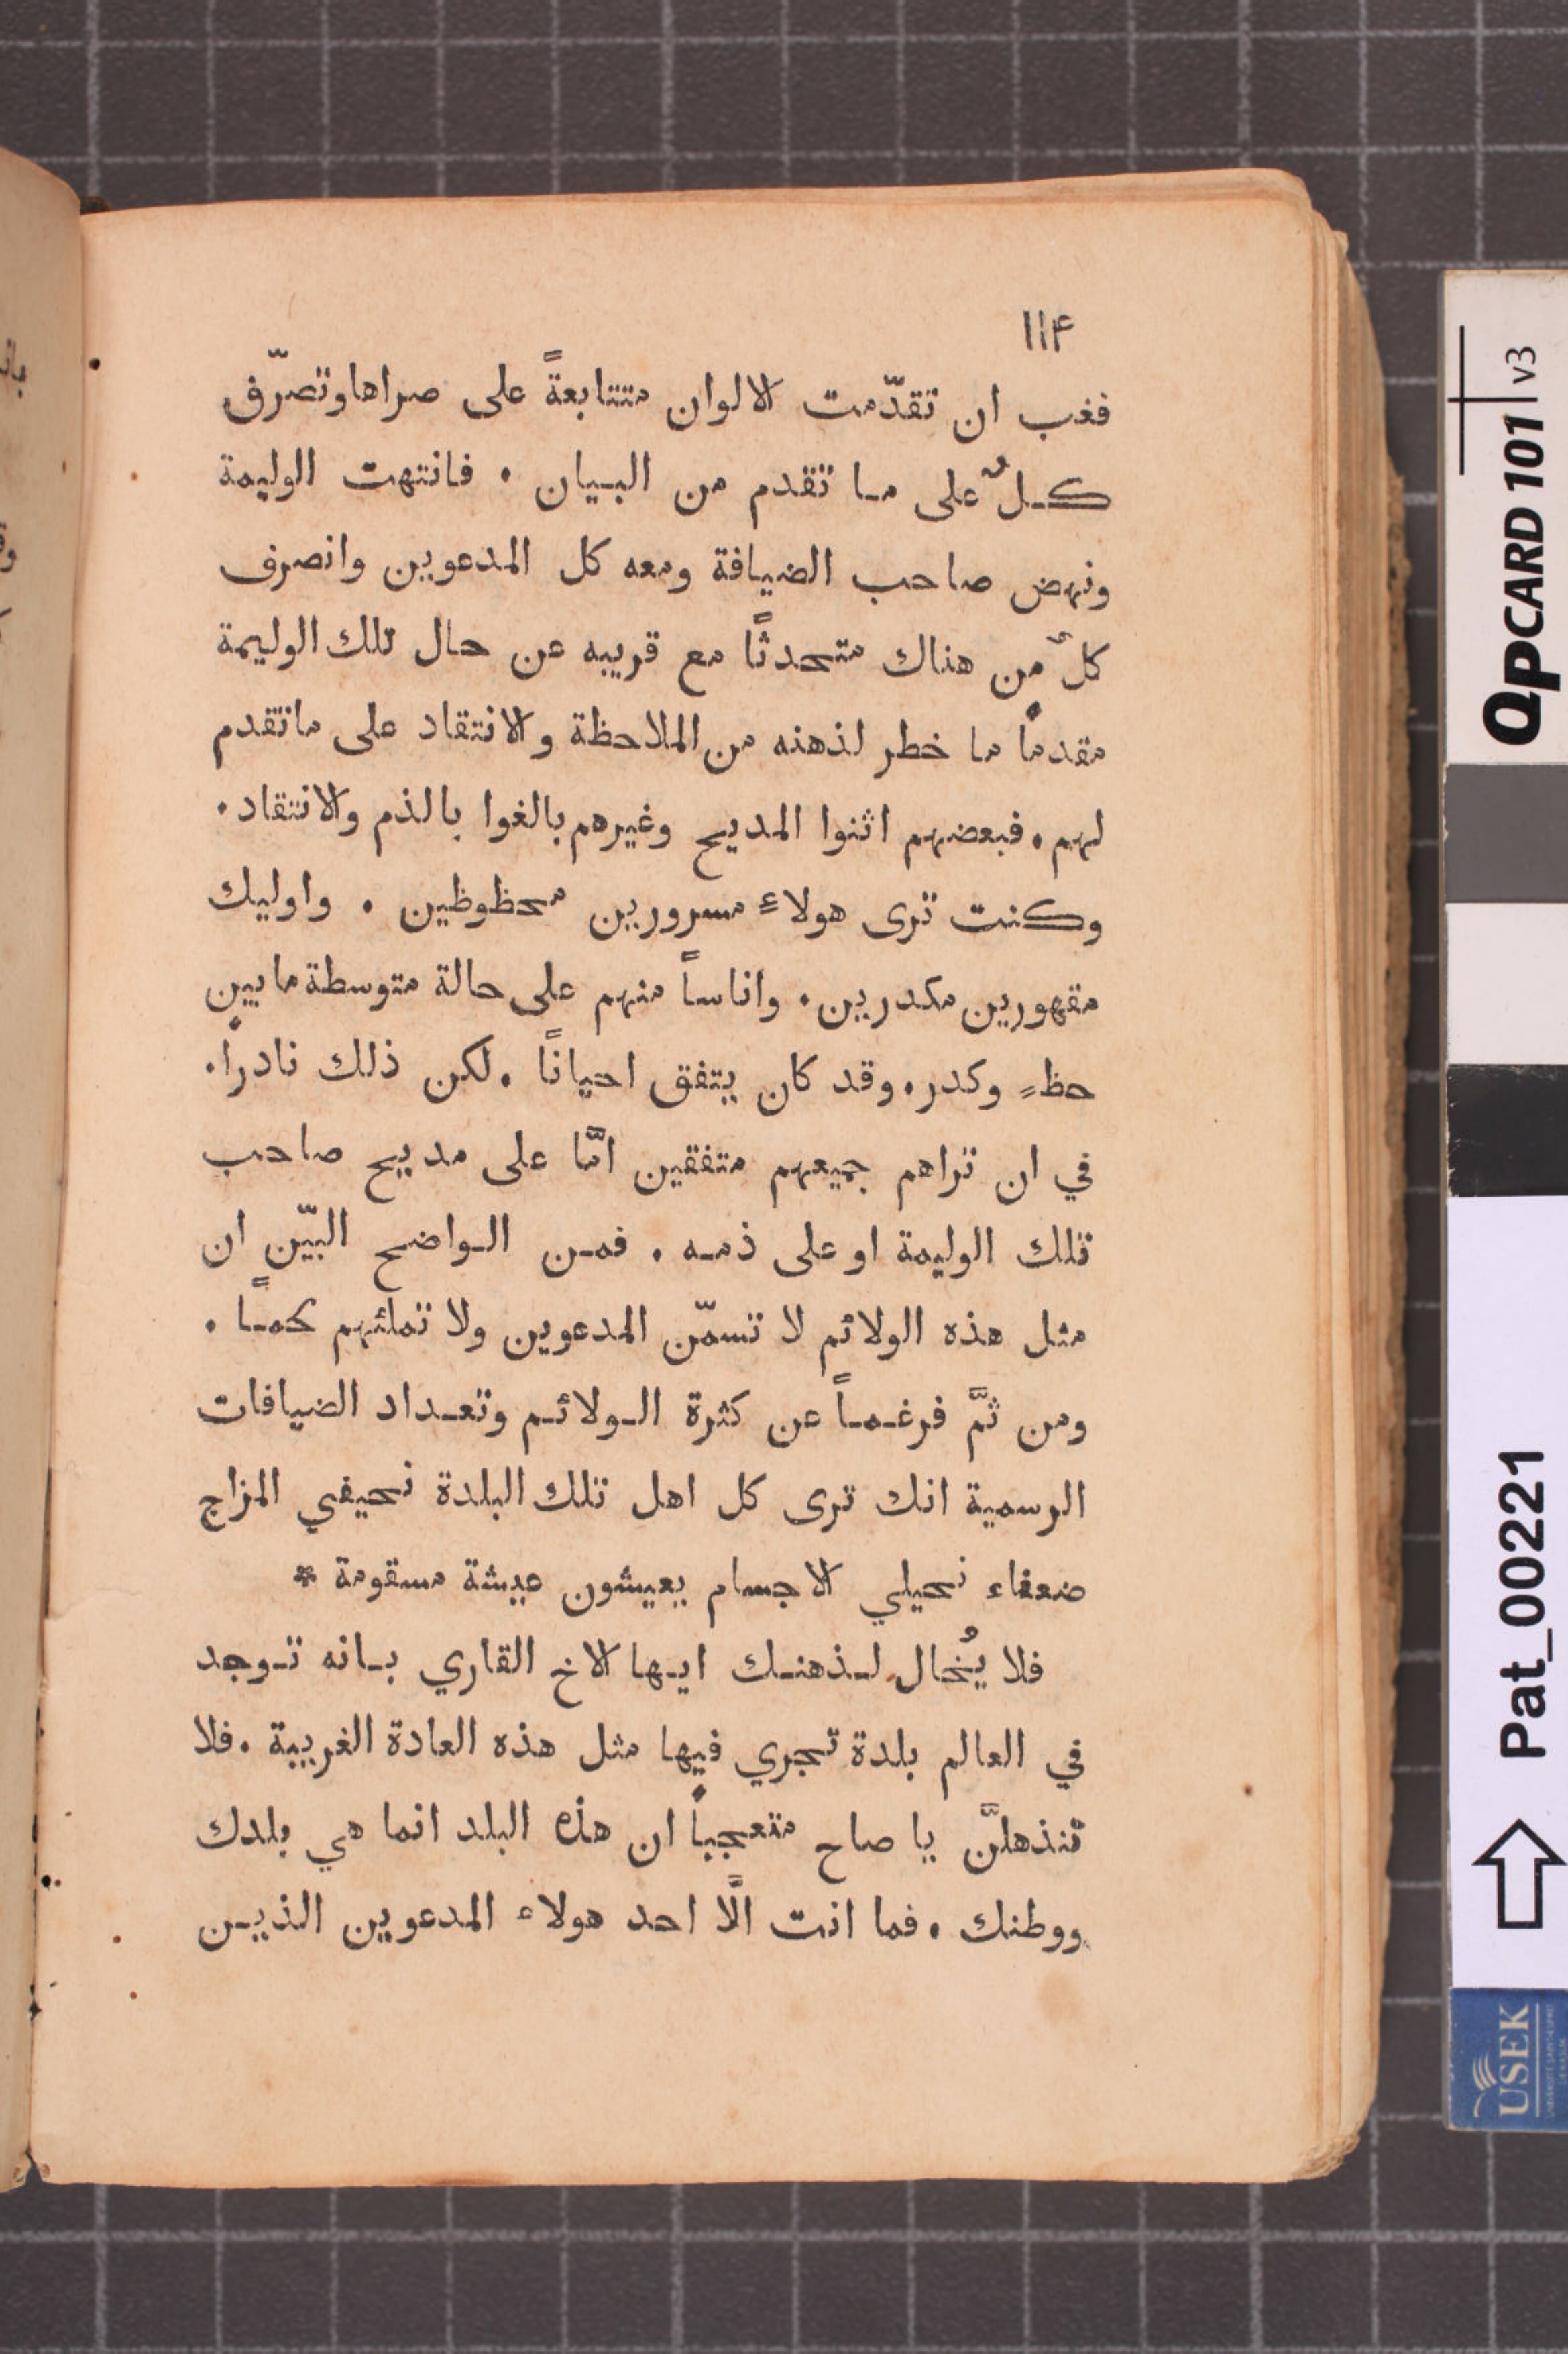 ١١۴
فغب ان تقدّمت الالوان متتابعةً على صراها وتصرّف
كـلٌ على مـا تقدم من البـيان . فانتهت الوليمة
ونهض صاحب الضيافة ومعه كل المدعوين وانصرف
كلٌ من هناك متحدثًا مع قريبه عن حال تلك الوليمة
مقدمًا ما خطر لذهنه من الملاحظة والانتقاد على ماتقدم
لهم . فبعضهم اثنوا المديح وغيرهم بالغوا بالذم والانتقاد .
وكنت ترى هولاءِ مسرورين محظوظين . واوليك
مقهورين مكدرين . واناساً منهم على حالة متوسطة مابين
حظٍ وكدر . وقد كان يتفق احيانًا . لكن ذلك نادراً .
في ان تراهم جميعهم متفقين امَّا على مديح صاحب
تلك الوليمة او على ذمـه . فمـن الـواضح البيّن ان
مثل هذه الولائم لا تسمّن المدعوين ولا تملئهم لحمـاً .
ومن ثمَّ فرغـمـاً عن كثرة الـولائـم وتعـداد الضيافات
الرسمية انك ترى كل اهل تلك البلدة نحيفي المزاج
ضعفاء نحيلي الاجسام يعيشون عيشة مسقومة *
فلا يُخال لـذهنـك ايـها الاخ القاري بـانه تـوجد
في العالم بلدة تجري فيها مثل هذه العادة الغريبة . فلا
تنذهلنَّ يا صاح متعجباً ان هذه البلد انما هي بلدك
ووطنك . فما انت الَّا احد هولاء المدعوين الذيـن
QPCARD 101 v3
Pat_00221
USEK